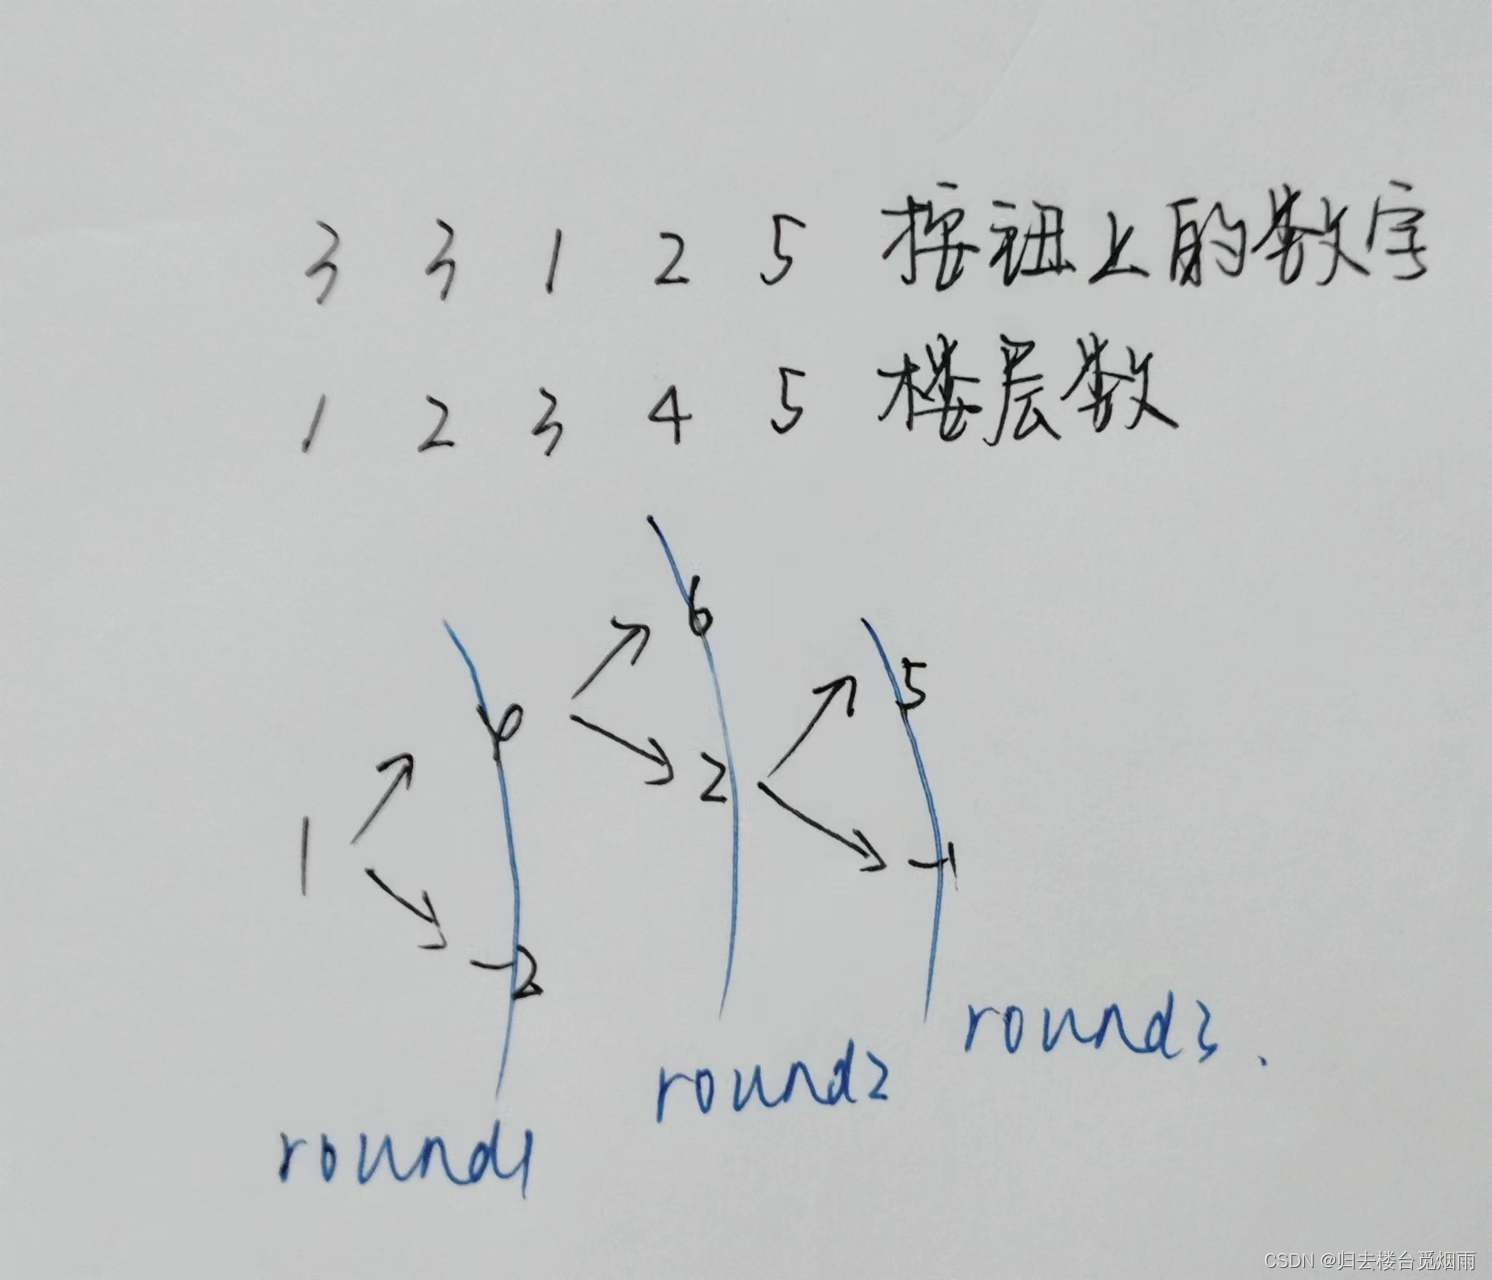 3 3 1 2 5 按钮上的数字
1 2 3 4 5 楼层数
6
5
2
1
-1
-2
round3.
round2
round1
CSDN @归去楼台觅烟雨